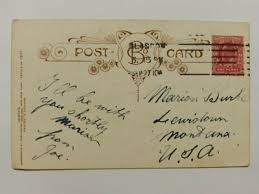 POST CARD
GLASGOW
I'll be with
you shortly
Marion
from
Joe.
Marion Burke
Lewistown
Montana.
U.S.A.